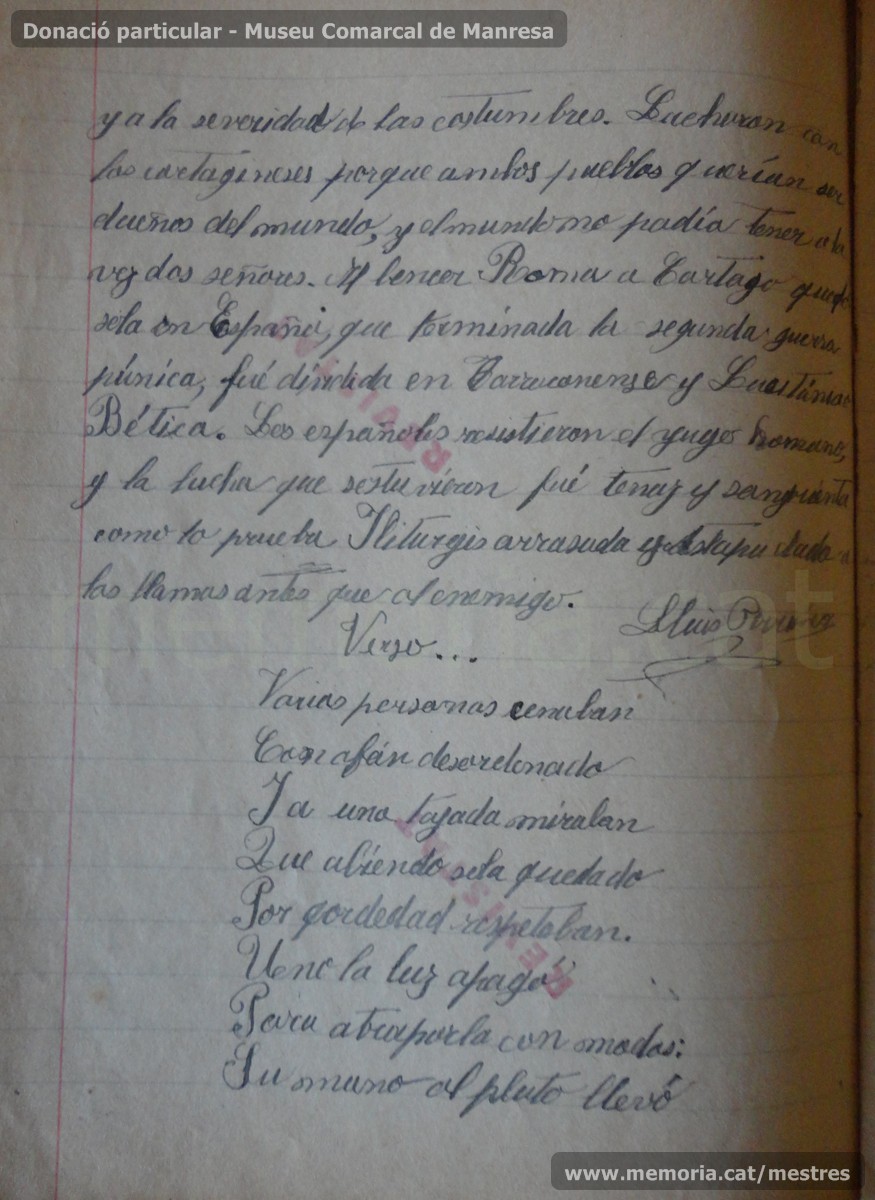 Donació particular - Museu Comarcal de Manresa
y a la severidad de las costumbres. Lucharon con
los cartagineses porque ambos pueblos querían ser
dueños del mundo, y el mundo no podía tener a la
vez dos señores. Al bencer Roma a Cartago quedó
sola en España, que terminada la segunda guerra
púnica, fué dividida en Tarraconense y
Bética. Los españoles resistieron el yugo romano,
y la lucha que sostuvieron fué tenaz y sangrienta
como lo prueba Iliturgis arrasada y Astapa dada a
las llamas antes que al enemigo.
Lluis
Verso...
Varias personas cenaban
Con afán desordenado
Y a una tajada miraban
Que abiendo sola quedado
Por cordedad respetaban.
Uno la luz apagó
Para atraparla con modos:
Su mano al plato llevó
REVISTAT
REVISTAT
memoria.cat
www.memoria.cat/mestres